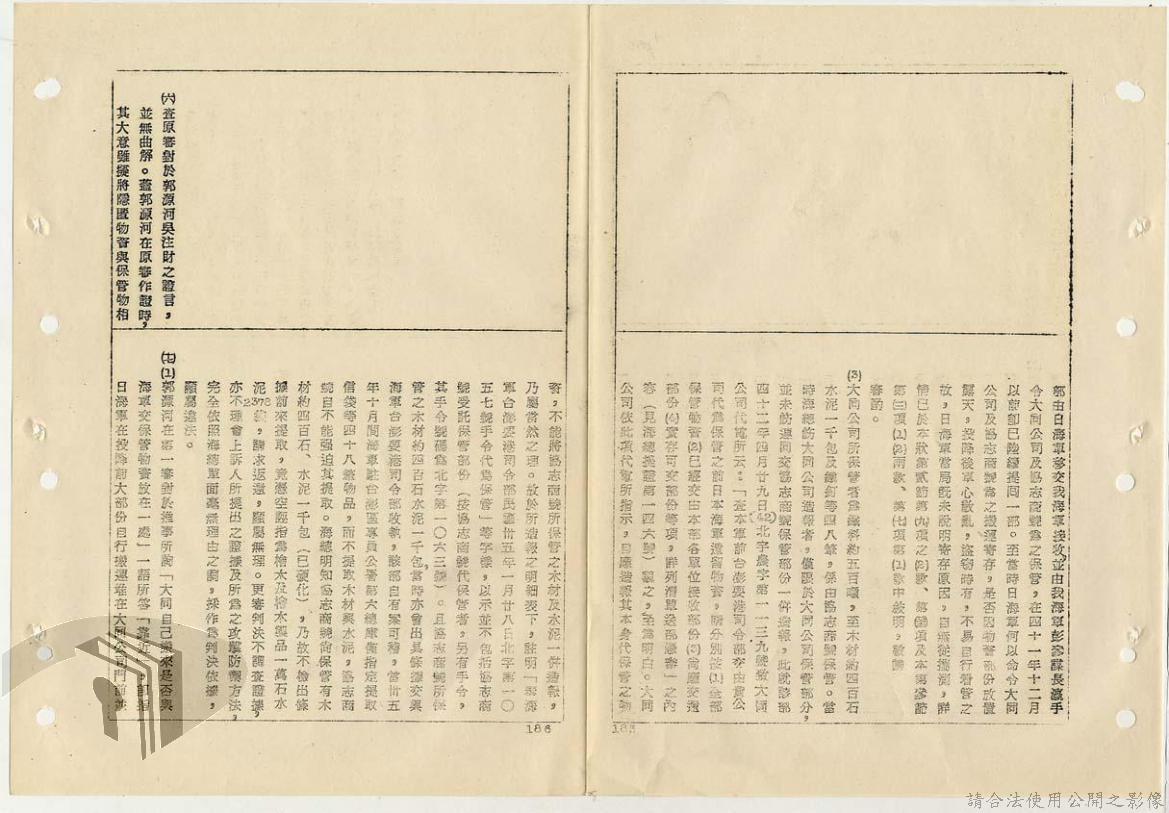 部由日海軍移交我海軍接收並由我海軍彭參謀長瀛手
令大同公司及協志商號為之保管,在四十一年十二月
以前卽已陸續提回一部。至當時日海軍何以命令大同
公司及協志商號為之搬運寄存,是否因物資部份放置
露天,投降後軍心散亂,盜竊時有,不易自行看管之
故,日海軍當局旣未說明寄存原因,自無從揣測,詳
情已於本狀第貳節第九項之(2)款、第 項及本第參節
第三項(1)(2)兩款、第七項第(1)款中敍明,敬請
審酌。
(3)大同公司所保管者為鐵料約五百噸,至木材約四百石
水泥一千包及鐵釘等四八 ,係由協志商號保管。當
時海總飭大同公司造報者,僅限於大同公司保管部分,
並未飭連同交協志商號保管部份一併造報,此觀該部
四十二年四月廿九日(42)北字農字第一一三九號致大同
公司代電所云:「查本軍前台澎要港司令部交由貴公
司代為保管之前日本海軍遺留物資,請分別按(1)全部
保管物資(2)已經交由本部各單位接收部份(3)尚應交還
部份(4)實存可交部份等項,詳列清單送部憑審」之內
容(見海總提證第一四六號)觀之,至為明白。大同
公司依此項代電所指示,自應造報其本身代保管之物
185
資,不能將協志商號所保管之木材及水泥一併造報,
乃屬當然之理。故於所造報之明細表下,註明「奉海
軍台澎要港司令部民國卅五年一月廿八日北字第一〇
五七號手令代為保管」等字樣,以示並不包括協志商
號受託保管部份(按協志商號代保管者,另有手令,
其手令號碼為北字第一〇六三號)。且協志商號所保
管之木材約四百石水泥一千包,當時亦會出具條據交與
海軍台澎要港司令部收執,該部自有案可稽,當卅五
年十月間海軍駐台澎區專員公署第六總庫衡指定提取
信袋等四十八 物品,而不提取木材與水泥,協志商
號自不能强迫其提取。海總明知協志商號尚保管有木
材約四百石、水泥一千包(已硬化),乃故不檢出條
據前來提取,竟憑空誣指為檜木及檜木製品一萬石水
泥2378 ,請求返還,顯屬無理。更審判決不調查證據,
亦不理會上訴人所提出之證據及所為之攻擊防禦方法,
完全依照海總單面毫無理由之 ,採作為判決依據,
顯屬違法。
(六)查原審對於郭源河吳注財之證言,
並無曲解。蓋郭源河在原審作證時,
其大意雖擬將隱匿物資與保管物相
(七)(1)郭源河在第一審對於推事所詢「大同自己 來是否與
海軍交保管物資放在一處」一語所答「靠近」,卽指
日海軍在投降前大部份自行搬運堆在大同公司門前並
186
請合法使用公開之影像